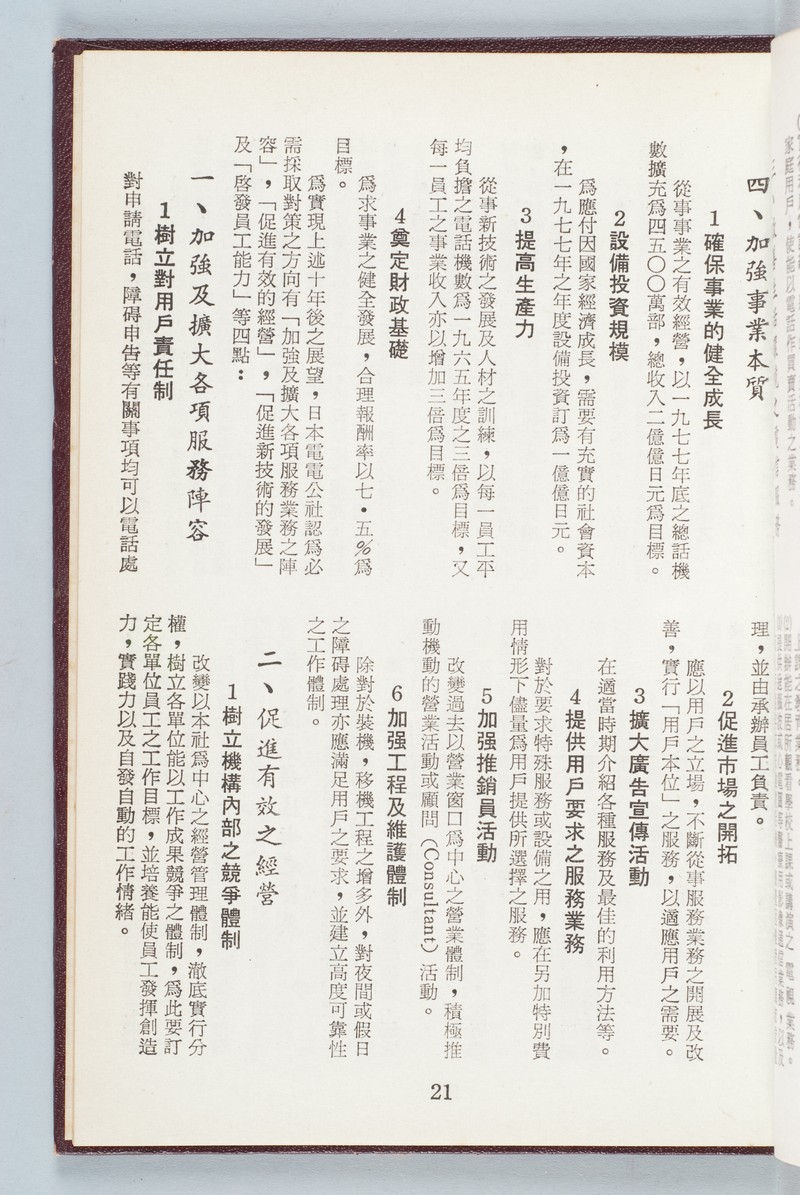 四、加強事業本質
1 確保事業的健全成長
從事事業之有效經營，以一九七七年底之總話機
數擴充爲四五〇〇萬部，總收入二億億日元爲目標。
2 設備投資規模
爲應付因國家經濟成長，需要有充實的社會資本
，在一九七七年之年度設備投資訂爲一億億日元。
3 提高生產力
從事新技術之發展及人材之訓練，以每一員工平
均負擔之電話機數爲一九六五年度之三倍爲目標，又
每一員工之事業收入亦以增加三倍爲目標。
4 奠定財政基礎
爲求事業之健全發展，合理報酬率以七·五％爲
目標。
爲實現上述十年後之展望，日本電電公社認爲必
需採取對策之方向有「加強及擴大各項服務業務之陣
容」，「促進有效的經營」，「促進新技術的發展」
及「啓發員工能力」等四點：
一、加強及擴大各項服務陣容
1 樹立對用戶責任制
對申請電話，障碍申告等有關事項均可以電話處
理，並由承辦員工負責。
2 促進市場之開拓
應以用戶之立場，不斷從事服務業務之開展及改
善，實行「用戶本位」之服務，以適應用戶之需要。
3 擴大廣告宣傳活動
在適當時期介紹各種服務及最佳的利用方法等。
4 提供用戶要求之服務業務
對於要求特殊服務或設備之用，應在另加特別費
用情形下儘量爲用戶提供所選擇之服務。
5 加强推銷員活動
改變過去以營業窗口爲中心之營業體制，積極推
動機動的營業活動或顧問（Consultant）活動。
6 加强工程及維護體制
除對於裝機，移機工程之增多外，對夜間或假日
之障碍處理亦應滿足用戶之要求，並建立高度可靠性
之工作體制。
二、促進有效之經營
1 樹立機構內部之競爭體制
改變以本社爲中心之經營管理體制，澈底實行分
權，樹立各單位能以工作成果競爭之體制，爲此要訂
定各單位員工之工作目標，並培養能使員工發揮創造
力，實踐力以及自發自動的工作情緒。
21